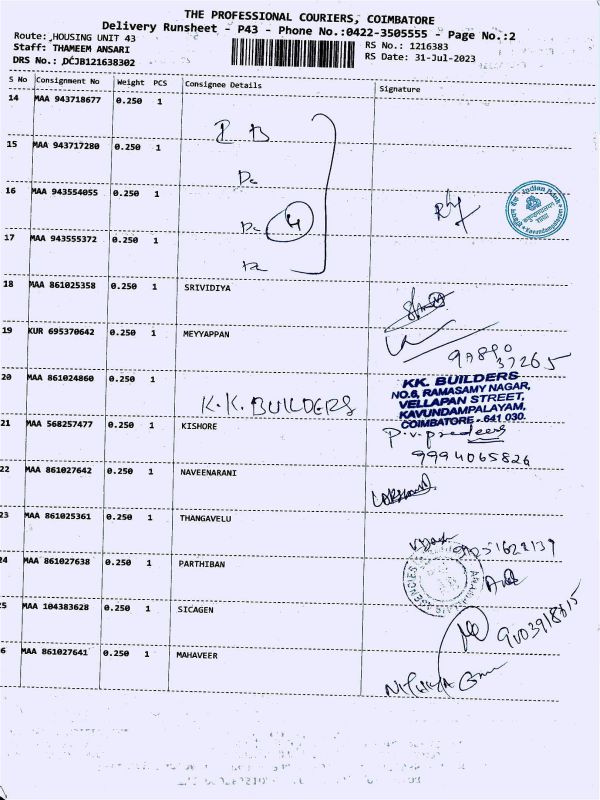 THE PROFESSIONAL COURIERS, COIMBATORE
Delivery Runsheet - P43 - Phone No.:0422-3505555 - Page No.:2
Route: HOUSING UNIT 43
RS No.: 1216383
Staff: THAMEEM ANSARI
RS Date: 31-Jul-2023
DRS No.: DCJB121638302
S No Consignment No Weight PCS Consignee Details Signature
14 MAA 943718677 0.250 1
15 MAA 943717280 0.250 1
16 MAA 943554055 0.250 1
Indian Bank
4
17 MAA 943555372 0.250 1
18 MAA 861025358 0.250 1 SRIVIDIYA
19 KUR 695370642 0.250 1 MEYYAPPAN
37265
20 MAA 861024860 0.250 1
K.K. BUILDERS
KK. BUILDERS
NO.6, RAMASAMY NAGAR,
VELLAPAN STREET,
KAVUNDAMPALAYAM,
COIMBATORE - 641 030.
21 MAA 568257477 0.250 1 KISHORE
9994065826
22 MAA 861027642 0.250 1 NAVEENARANI
23 MAA 861025361 0.250 1 THANGAVELU
24 MAA 861027638 0.250 1 PARTHIBAN
25 MAA 104383628 0.250 1 SICAGEN
6 MAA 861027641 0.250 1 MAHAVEER